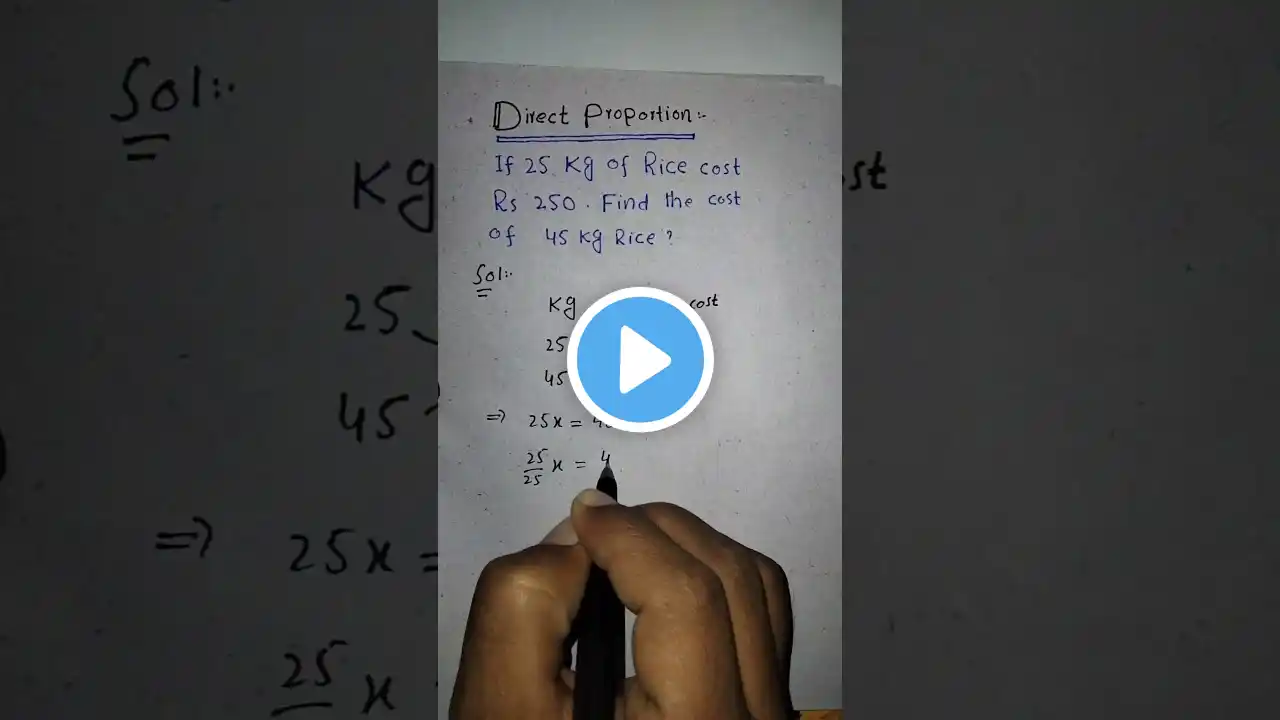 Direct Proportion:-
If 25 Kg of Rice cost
Rs 250. Find the cost
of 45 Kg Rice?
Sol:-
Kg cost
25
45
=> 25x =
25/25 x = 4
Sol:-
Kg
25
45
=> 25x =
25 x